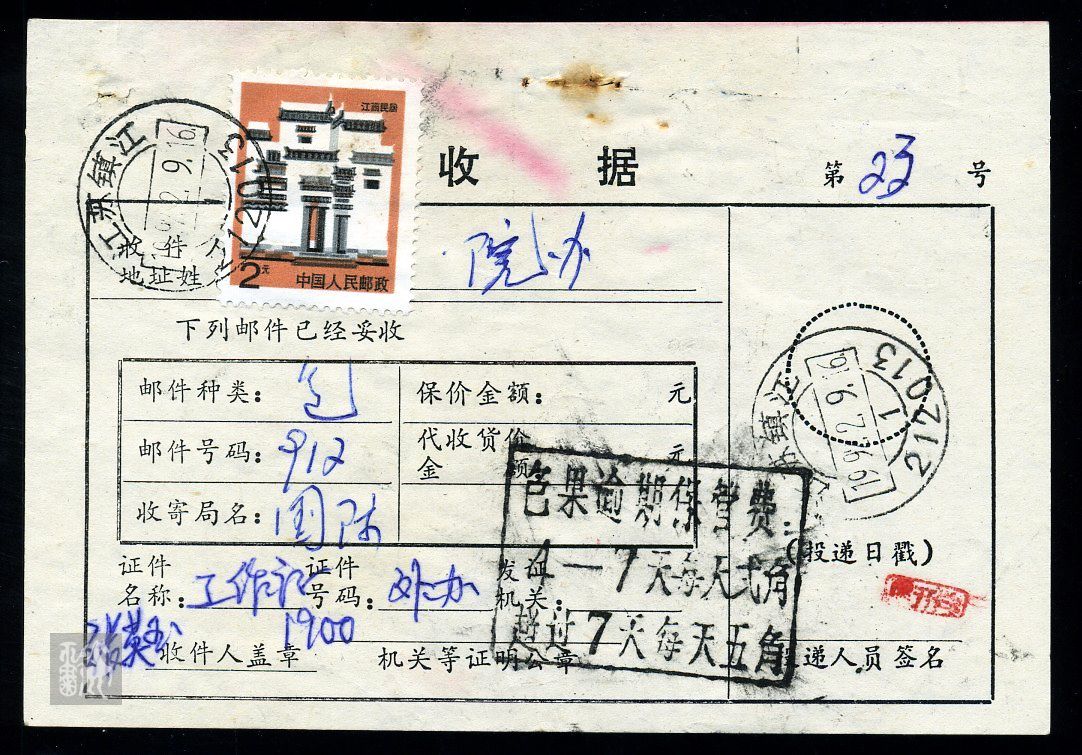 江西民居
2元 中国人民邮政
江苏镇江
212013
收 据
第 号
收件人
地址姓
院办
下列邮件已经妥收
邮件种类: 包
保价金额: 元
邮件号码: 912
代收货价
金 额 元
收寄局名: 国际
证件
名称: 工作证
证件
号码: 外办
1900
发证
机关:
收件人盖章
机关等证明公章
包果逾期保管费:
4—7天每天弍角
超过7天每天五角
212013
(投递日戳)
投递人员签名